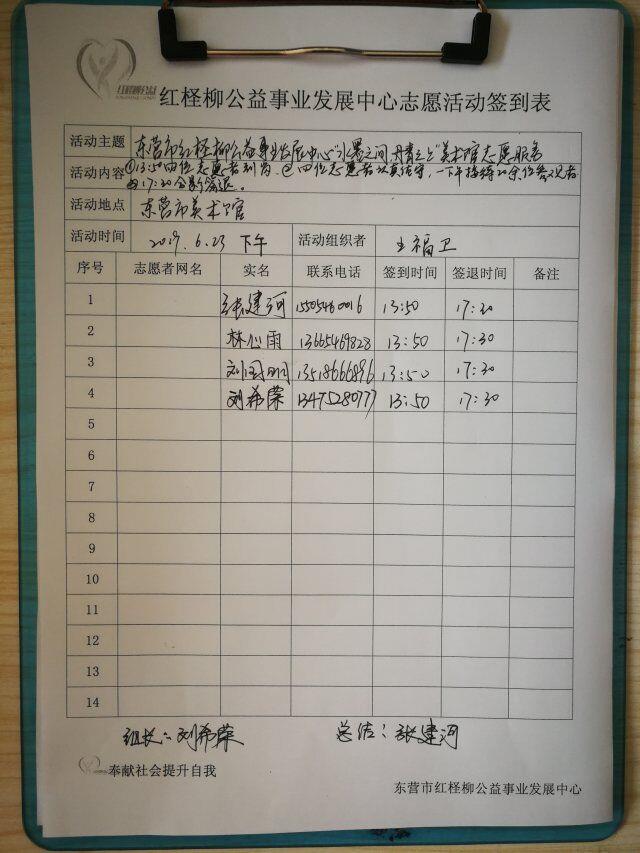 红柽柳公益
红柽柳公益事业发展中心志愿活动签到表
活动主题 东营市红柽柳公益事业发展中心“水墨之间,丹青之上”美术馆志愿服务
活动内容 ①13:50四位志愿者到岗。②四位志愿者认真值守,一下午接待20余位参观者
③17:30全部签退。
活动地点 东营市美术馆
活动时间 2019.6.23 下午 活动组织者 王福卫
序号 志愿者网名 实名 联系电话 签到时间 签退时间 备注
1 张建河 15505460016 13:50 17:30
2 林心雨 13665469828 13:50 17:30
3 刘国明 13518666896 13:50 17:30
4 刘希荣 13475280777 13:50 17:30
5
6
7
8
9
10
11
12
13
14
组长:刘希荣 总结:张建河
奉献社会提升自我
东营市红柽柳公益事业发展中心